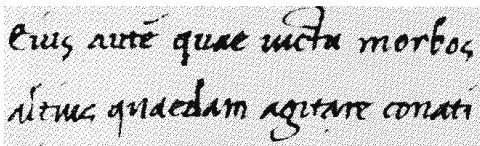 Eius autē quae uictu morbos
altius quaedam agitare conati